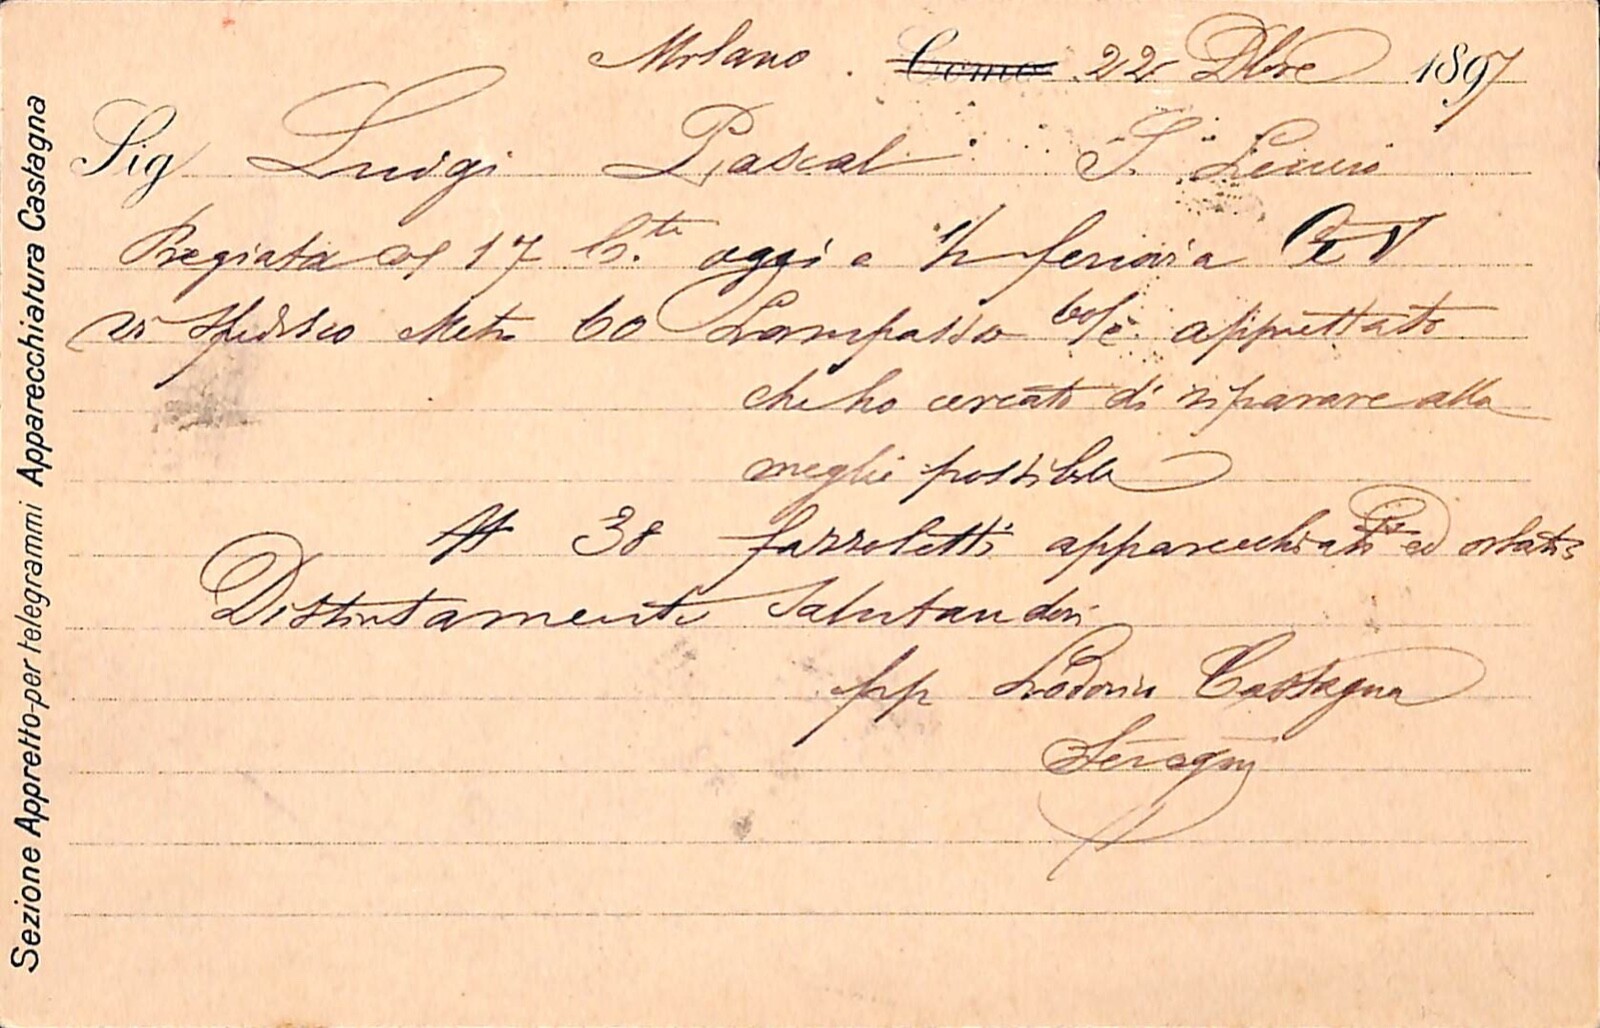 Milano . Como 22 Dbre 1897
Sig Luigi Pascal S. Leucio
Pregiata del 17 C.te oggi a 1/2 ferrovia
vi spedisco Metri 60 Lampasso apprettato
che ho cercato di riparare alla
meglio possibile
N 38 fazzoletti apparecchiati ed orlati
Distintamente Salutandovi
pp Lodovico Castagna
Sezione Appretto-per telegrammi Apparecchiatura Castagna